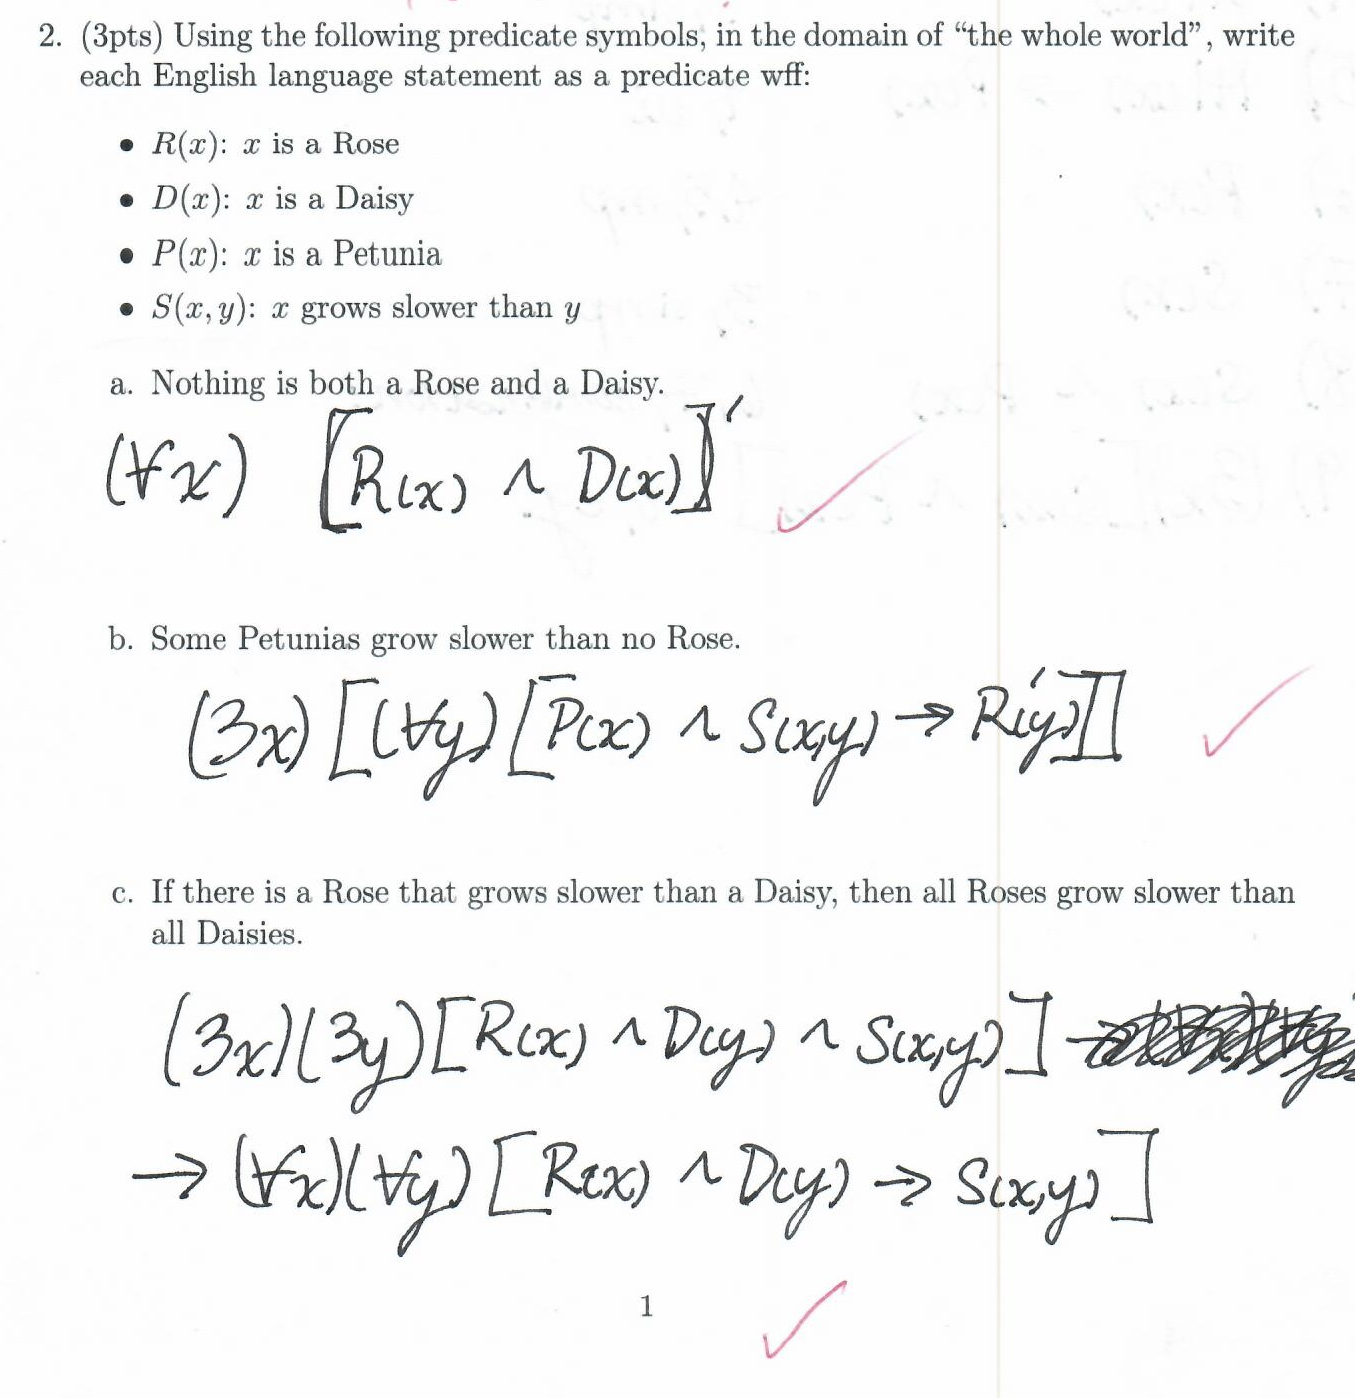 2. (3pts) Using the following predicate symbols, in the domain of “the whole world”, write
each English language statement as a predicate wff:
• R(x): x is a Rose
• D(x): x is a Daisy
• P(x): x is a Petunia
• S(x, y): x grows slower than y
a. Nothing is both a Rose and a Daisy.
(∀x) [R(x) ∧ D(x)]′
b. Some Petunias grow slower than no Rose.
(∃x) [(∀y) [P(x) ∧ S(x,y) → R(y)′]]
c. If there is a Rose that grows slower than a Daisy, then all Roses grow slower than
all Daisies.
(∃x)(∃y)[R(x) ∧ D(y) ∧ S(x,y)]
→ (∀x)(∀y) [R(x) ∧ D(y) → S(x,y)]
1